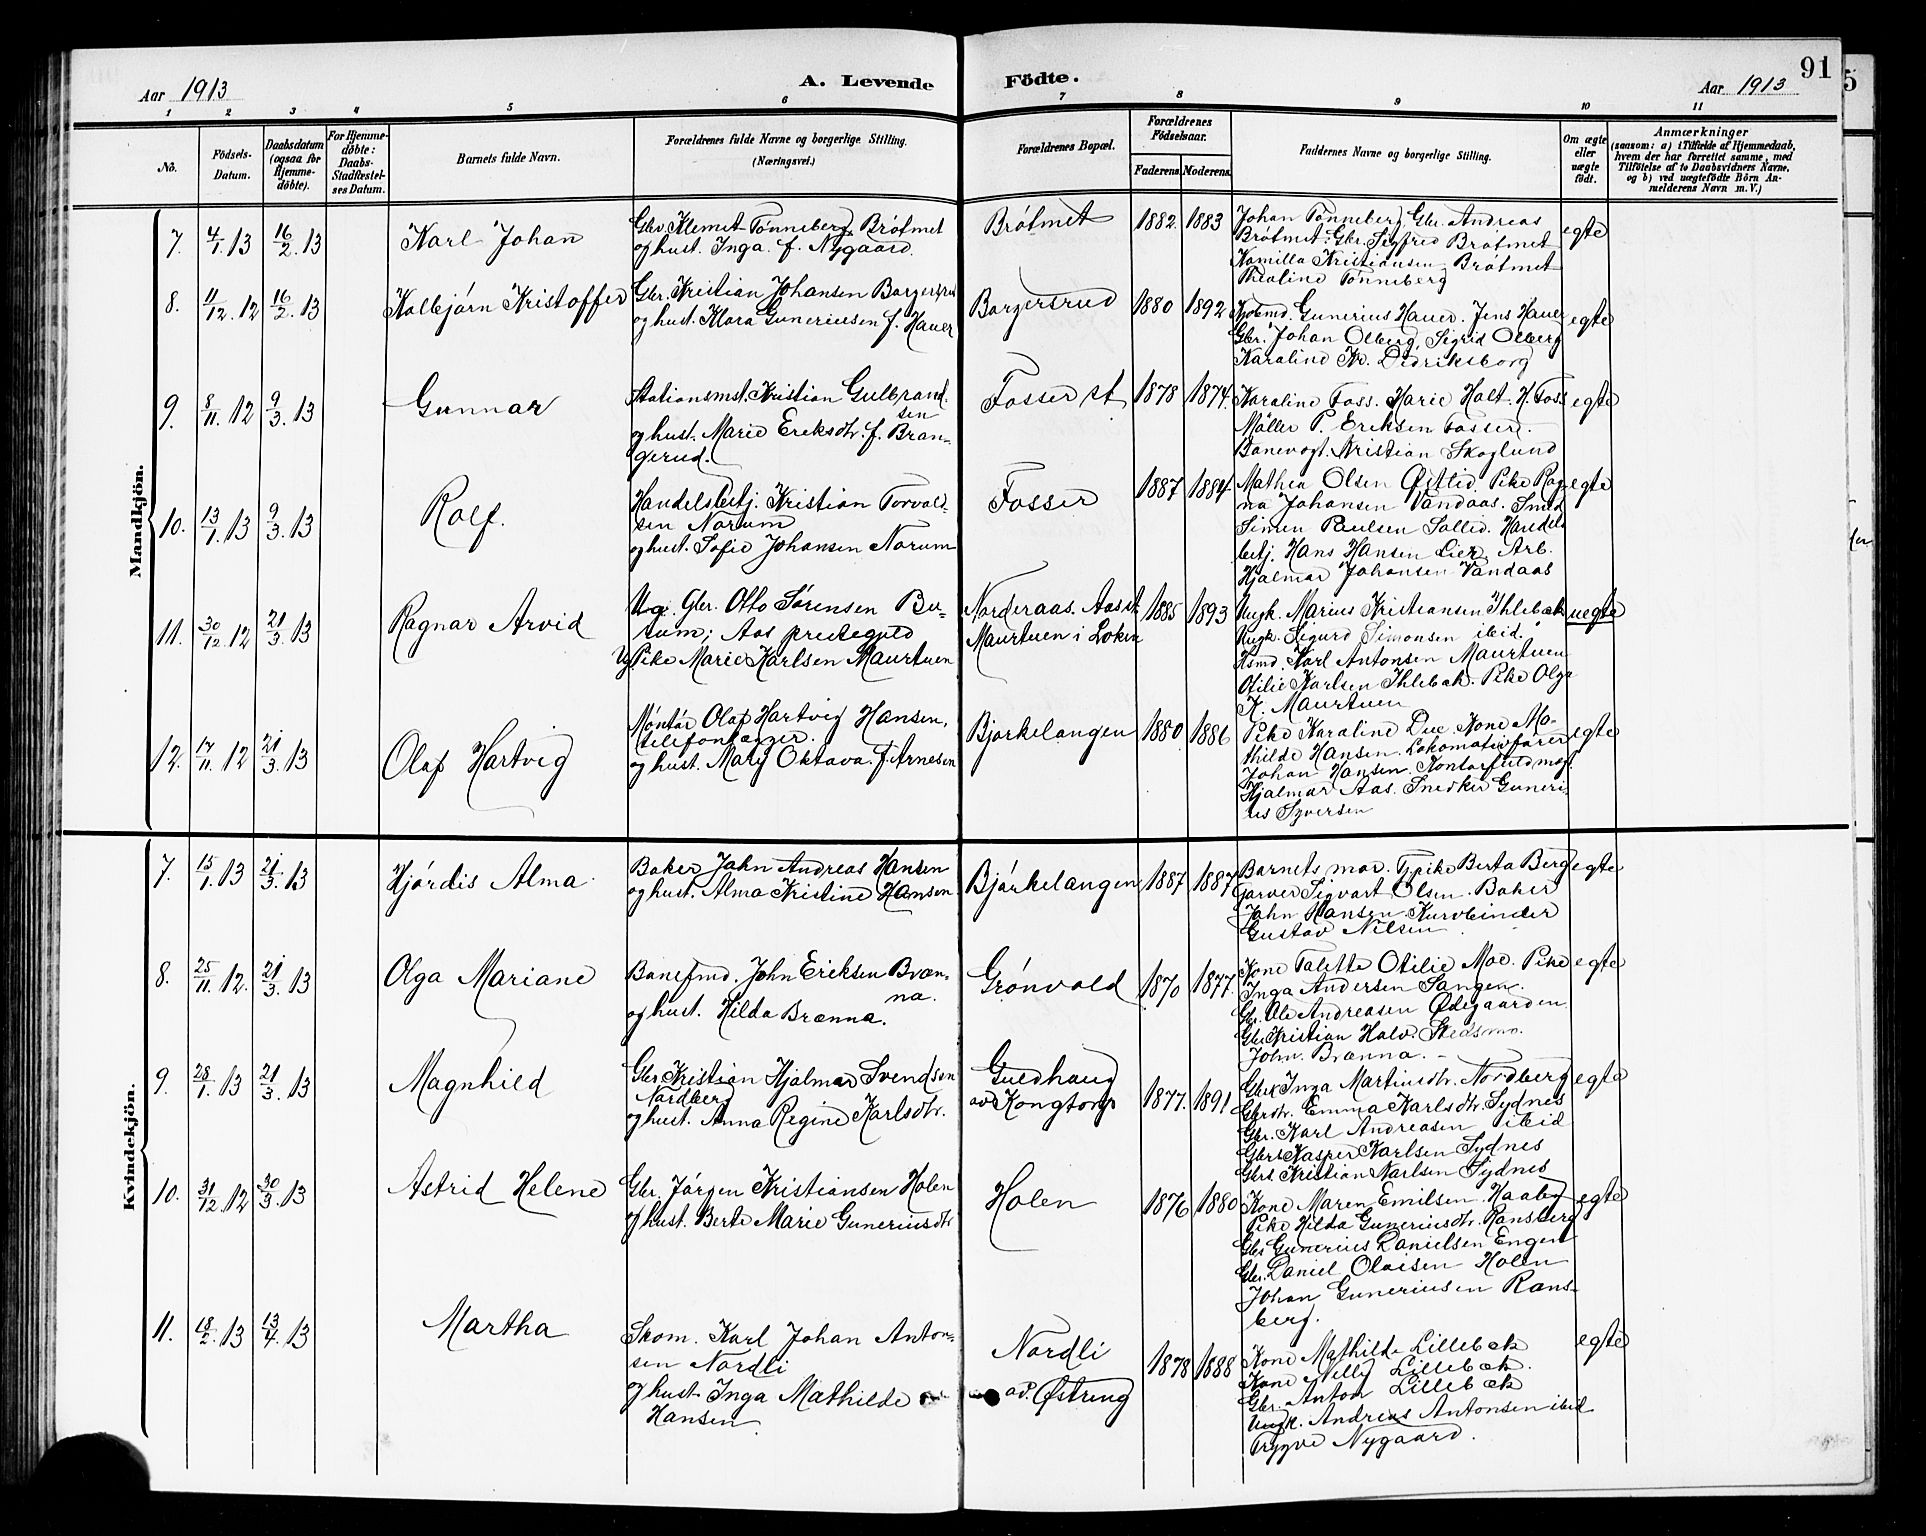 91
Aar 1913
A. Levende
Födte.
Aar 1913
1 2 3 4 5 6 7 8 9 10 11
No.
Födsels-Datum.
Daabsdatum (ogsaa för Hjemme-döbte).
For Hjemme-döbte: Daabs-Stadfæstel-ses Datum.
Barnets fulde Navn.
Forældrenes fulde Navne og borgerlige Stilling.
(Næringsvei.)
Forældrenes Bopæl.
Forældrenes Födselsaar.
Faderens Moderens
Faddernes Navne og borgerlige Stilling.
Om ægte eller uægte födt.
Anmærkninger
(saasom: a) i Tilfælde af Hjemmedaab,
hvem der har forrettet samme, med
Tilföielse af to Daabsvidners Navne,
og b) ved uægtefödte Börn An-
melderens Navn m. V.)
Mandkjön.
7. 4/1.13 16/2.13 Karl Johan
Gbr. Klemet Tønneberg, Brøtmet
og hust. Inga f. Nygaard.
Brøtmet 1882. 1883
Johan Tønneberg Gbr. Andreas
Brøtmet. Gbr. Sigfred Brøtmet
Kamilla Kristiansen Brøtmet
Thealine Tønneberg
egte
8. 11/12.12 16/2.13 Kolbjørn Kristoffer
Gbr. Kristian Johansen Borgersrud
og hust. Klara Guneriusen f. Hauer
Borgersrud 1880 1892
Gunerius Hauer. Jens Hauer
Gbr. Johan Olberg, Sigrid Olberg
Karaline Kr. Didriksborg
egte
9. 8/11.12 9/3.13 Gunnar
Stationsmst. Kristian Gulbrand-
sen
og hust. Marie Eriksdtr. f. Bran-
gerud.
Fosser st 1878 1874.
Karaline Foss. Marie Holt. H. Foss
Møller P. Eriksen Fosser.
Banevogt. Kristian Skoglund
egte
10. 13/1.13 9/3.13 Rolf.
Handelsbetj. Kristian Torvald-
sen Norum
og hust. Sofie Johansen Norum
Fosser 1887 1884.
Mathea Olsen Østlid Pike Rag-
na Johansen Vandaas. Smed
Simen Paulsen Sollid. Handels-
betj. Hans Hansen Lier, Arb.
Hjalmar Johansen Vandaas
egte
11. 30/12.12 21/3.13 Ragnar Arvid
Ug. Gbr. Otto Sørensen Bu-
rum; Aas prestegjeld
Ug Pike Marie Karlsen Maurtuen
Norderaas. Aas st.
Maurtuen i Løken
1885 1893
Ungk. Marius Kristiansen Ihlebæk
Ungk. Sigurd Simonsen ibid.
Hsmd. Karl Antonsen Maurtuen
Otilie Karlsen Ihlebæk. Pike Olga
K. Maurtuen
uegte
12. 17/11.12 21/3.13 Olaf Hartvig
Montør Olaf Hartvig Hansen,
og hust. Mary Oktava. f. Arnesen
Bjørkelangen 1880 1886
Pike Karaline Due. Kone Ma-
thilde Hansen. Lokomotivfører
Johan Hansen. Kontorfuldmæg.
Hjalmar Aas. Snedker Guneri-
us Syversen
egte
Kvindekjön.
7. 15/1.13 21/3.13 Hjørdis Alma
Baker John Andreas Hansen
og hust. Alma Kristine Hansen
Bjørkelangen 1887 1887
Barnets mor. Tjpike Berta Berg
Garver Sigvart Olsen. Baker
John Hansen. Kurvbinder
Gustav Nilsen
egte
8. 25/11.12. 21/3.13 Olga Mariane
Banefmd. John Eriksen Bræn-
na.
og hust. Hilda Brænna.
Grønvold 1870 1877.
Kone Talette Otilie Moe. Pike
Inga Andersen Sangen.
Gbr. Ole Andreasen Ødegaarden
Gbr. Kristian Halv. Stedsmo.
John. Brænna.
egte
9. 28/1.13 21/3.13 Magnhild
Gbr. Kristian Hjalmar Svendsen
Nordberg
og hust. Anna Regine Karlsdtr.
Guldhaug
av Kongtorp
1877. 1891
Gbrk Inga Martinsdtr. Nordberg
Gbrdtr. Emma Karlsdtr. Sydnes
Gbr. Karl Andreasen ibid
Gbrs. Kasper Karlsen Sydnes
Gbrs. Kristian Karlsen Sydnes
egte
10. 31/12.12 30/3.13 Astrid Helene
Gbr. Jørgen Kristiansen Holen
og hust. Berte Marie Guneriusdtr
Holen 1876 1880
Kone Maren Emilsen Haaby
Pike Hilda Guneriusdtr. Ransberg
Gbr Gunerius Danielsen Engen
Gbr. Daniel Olaisen Holen
Johan Gunerinsen Rans-
berg.
egte
11. 18/2.13 13/4.13 Martha
Skom. Karl Johan Anton-
sen Nordli
og hust. Inga Mathilde
Hansen
Nordli
av. Østreng
1878 1888
Kone Mathilde Lillebæk
Kone Nelly Lillebæk.
Gbr. Anton Lillebæk
Ungk. Andreas Antonsen ibid
Trygve Nygaard.
egte